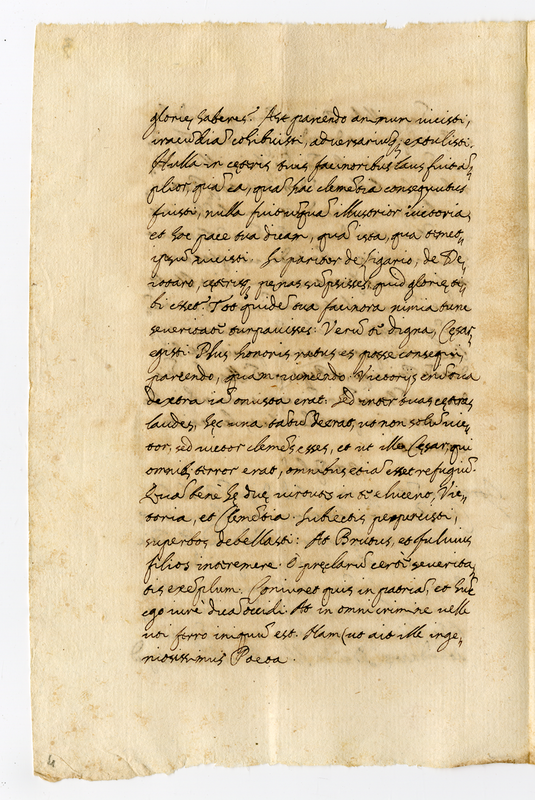 glorię haberes? Ast parcendo animum vicisti,
iracūdiā cohibuisti, adversariūq; extulisti.
Nulla in cęteris tuis facinoribus laus fuit ā„
plior, quā ea, quā hac clemētia consequutus
fuisti, nulla fuit unquā illustrior victoria,
et hoc pace tua dicam, quā ista, qua temet„
ipsum vicisti. Si pariter de Ligario, de De„
iotaro, cęterisq; pęnas sūpsisses, quid glorię ti„
bi esset? Tot quidē tua facinora nimia tunc
severitate turpavisses: Verū te digna, Cęsar,
egisti. Plus honoris ratus es posse consequi,
parcendo, quam vincendo. Victorijs enī tua
dextra iā onusta erat. Sed inter tuas cęteras
laudes, hęc una tātū deerat, ut non solū vic„
tor, sed victor clemēs esses, et ut ille Cęsar, qui
omnib; terror erat, omnibus etiā esset refugiū.
Quā benè hę duę virtutes in te elucent, Vic„
toria, et Clemētia. Subiectis pepercisti,
superbos debellasti: At Brutus, et Fulvius
filios interemere. O pręclarū certè severita„
tis exēplum. Coniuret quis in patriā, et hūc
ego iurè dicā occidi. At in omni crimine velle
uti ferro iniquū est. Nam (ut ait ille inge„
niosissimus Poeta.
4